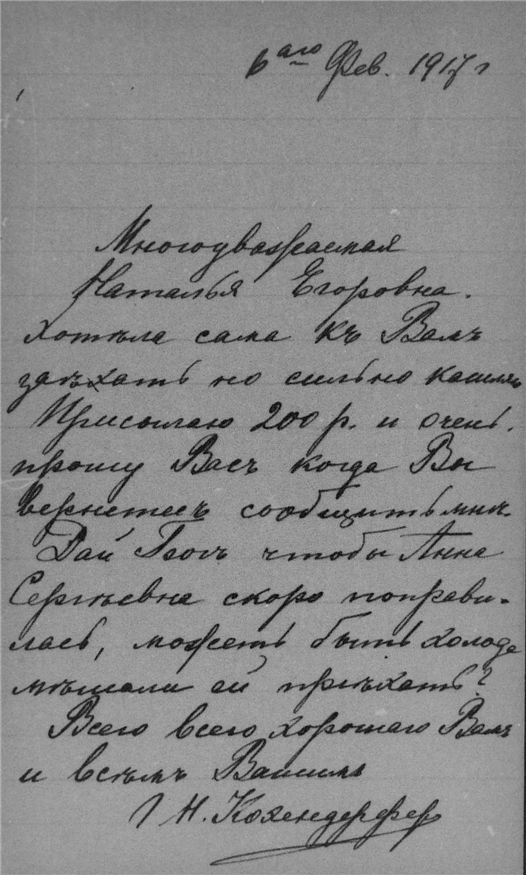 6аго Фев. 1917 г
Многоуважаемая
Наталья Егоровна.
хотѣла сама къ Вамъ
заѣхать но сильно кашляю
Присылаю 200 р. и очень.
прошу Васъ когда Вы
вернетесь сообщить мнѣ.
Дай Богъ чтобы Анна
Сергѣевна скоро поправи-
лась, можетъ быть холода
мѣшали ей пріѣхать?
Всего всего хорошаго Вамъ
и всѣмъ Вашимъ
Н. Кохендерфер